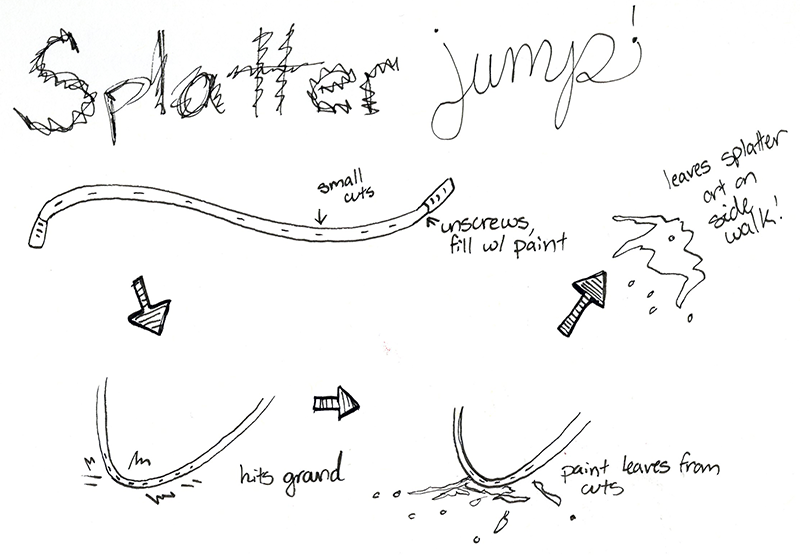 Splatter jump!
small
cuts
unscrews,
fill w/ paint
leaves splatter
art on
side
walk!
hits ground
paint leaves from
cuts